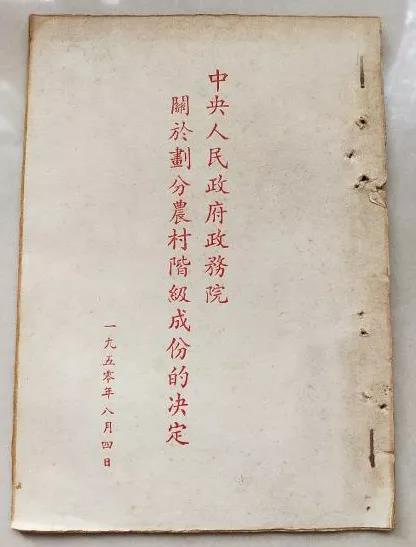 中央人民政府政務院
關於劃分農村階級成份的决定
一九五零年八月四日